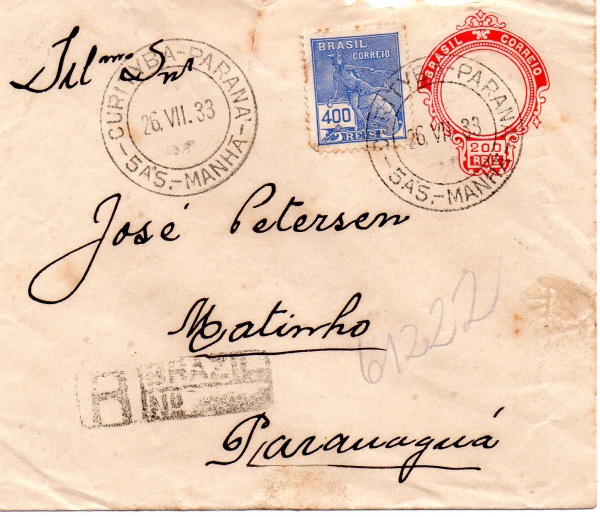 Illmo Snr
CURITYBA-PARANÁ
26.VII.33
-5AS.-MANHÃ-
BRASIL
CORREIO
400
REIS
BRASIL CORREIO
200
REIS
CURITYBA-PARANÁ
26.VII.33
-5AS.-MANHÃ-
José Petersen
Matinho
61222
R BRAZIL
No
Paranaguá